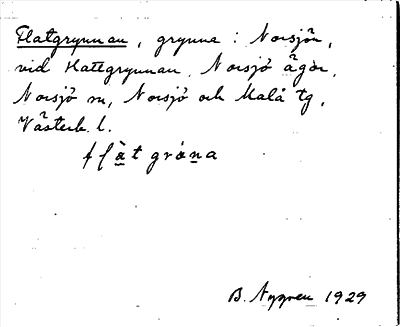 Flatgrynnan, grynna: Norsjön,
vid Hattgrynnan, Norsjö ägor,
Norsjö sn, Norsjö och Malå tg,
Västerb. l.
B. Nygren 1929